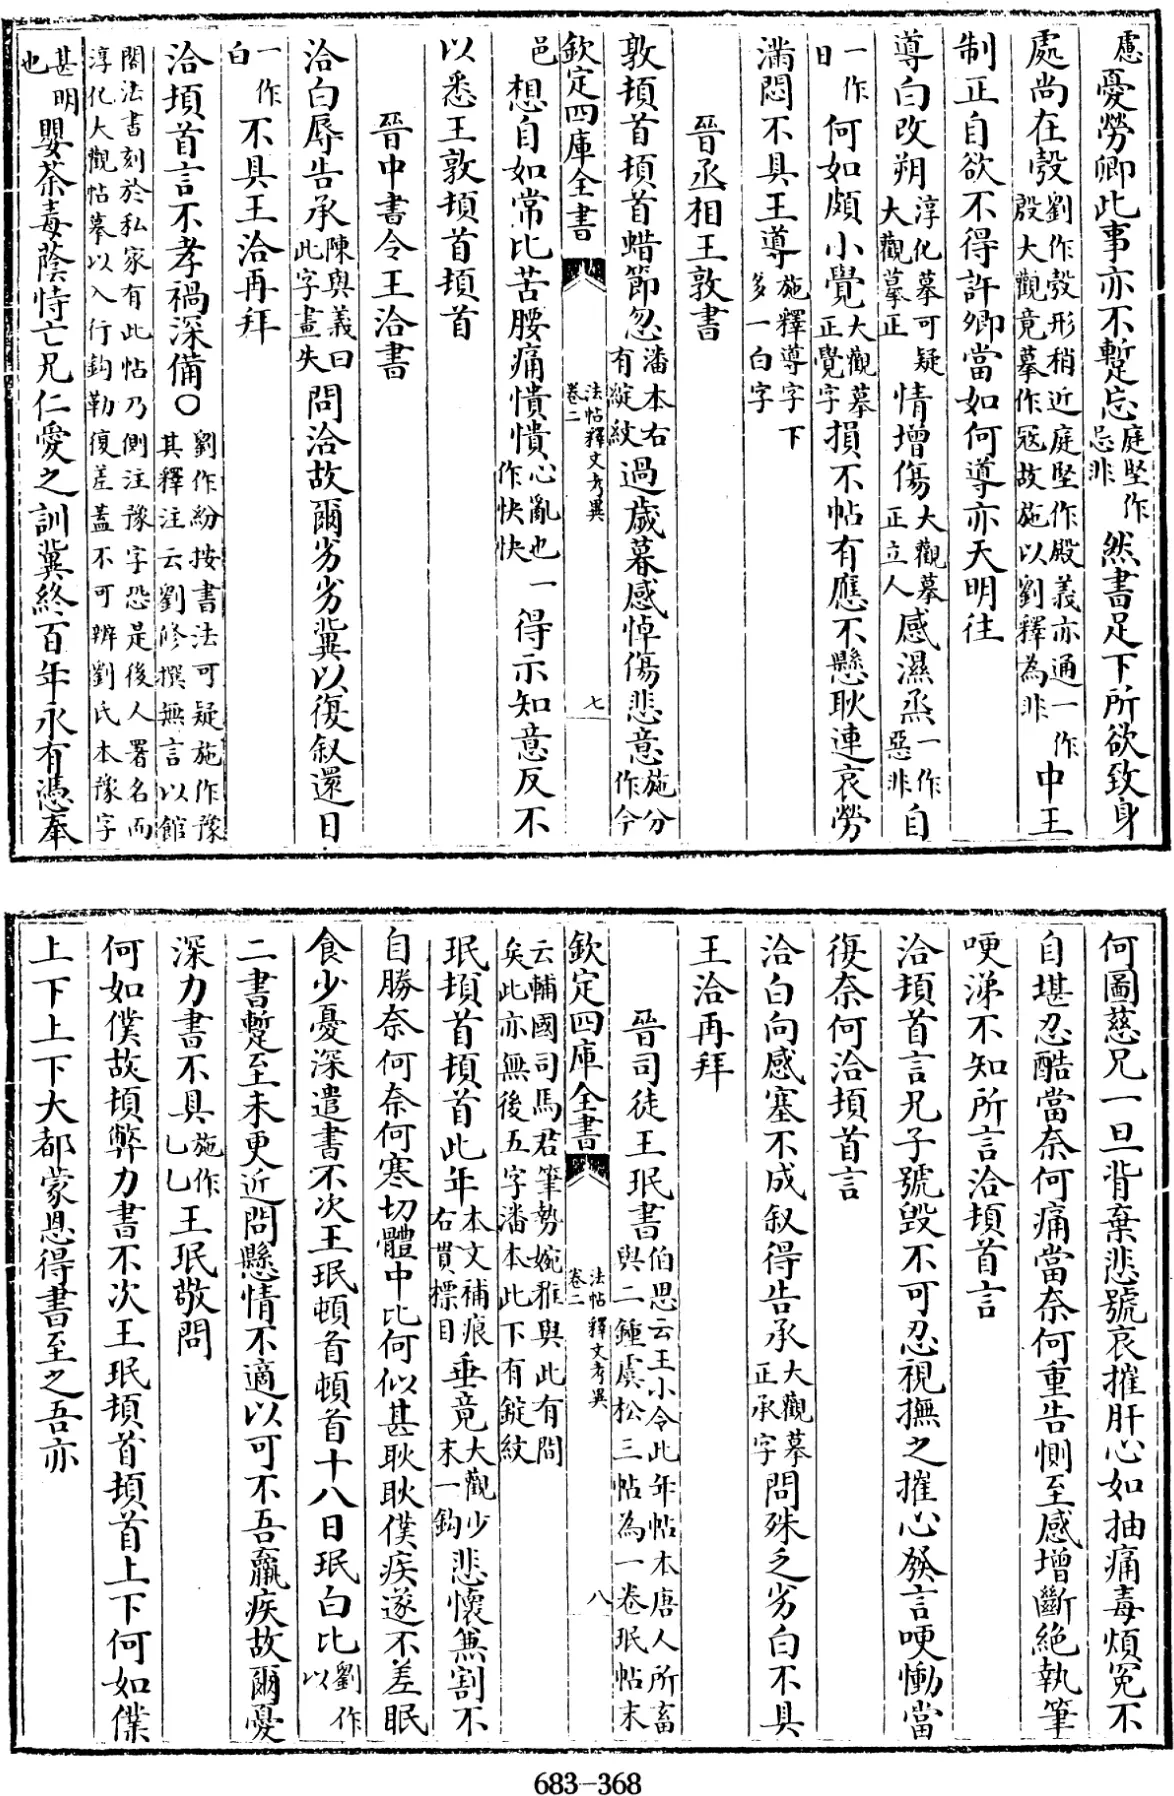 慮憂勞卿此事亦不暫忘庭堅作忌非然書足下所欲致身
處尚在彀劉作彀形稍近庭堅作殿義亦通一作殷大觀竟摹作寇故施以劉釋為非中王
制正自欲不得許卿當如何導亦天明往
導白改朔淳化摹可疑大觀摹正情增傷大觀摹正立人感濕烝一作惡非自
一作日何如頗小覺大觀摹正覺字損不帖有應不懸耿連哀勞
滿悶不具王導施釋導字下多一白字
晉丞相王敦書
敦頓首頓首蜡節忽潘本右有綻紋過歲暮感悼傷悲意施分作今
欽定四庫全書
法帖釋文考異
卷二
七
邑想自如常比苦腰痛憒憒心亂也一作快快得示知意反不
以悉王敦頓首頓首
晉中書令王洽書
洽白辱告承陳與義曰此字畫失問洽故爾劣劣冀以復叙還日
一作白不具王洽再拜
洽頓首言不孝禍深備○劉作紛按書法可疑施作豫其釋注云劉修撰無言以館
閣法書刻於私家有此帖乃側注豫字恐是後人署名而淳化大觀帖摹以入行鈎勒復差蓋不可辨劉氏本豫字
甚明也嬰荼毒蔭恃亡兄仁愛之訓冀終百年永有憑奉
何圖慈兄一旦背棄悲號哀摧肝心如抽痛毒煩冤不
自堪忍酷當奈何痛當奈何重告惻至感增斷絕執筆
哽涕不知所言洽頓首言
洽頓首言兄子號毀不可忍視撫之摧心發言哽慟當
復奈何洽頓首言
洽白向感塞不成叙得告承大觀摹正承字問殊乏劣白不具
王洽再拜
晉司徒王珉書伯思云王小令此年帖本唐人所畜與二鍾虞松三帖為一卷珉帖末
欽定四庫全書
法帖釋文考異
卷二
八
云輔國司馬君筆勢婉雅與此有間矣此亦無後五字潘本此下有錠紋
珉頓首頓首此年本文補痕右貫標目垂竟大觀少末一鈎悲懷兼割不
自勝奈何奈何寒切體中比何似甚耿耿僕疾遂不差眠
食少憂深遣書不次王珉頓首頓首十八日珉白比劉作以
二書暫至未更近問懸情不適以可不吾羸疾故爾憂
深力書不具施作乚乚王珉敬問
何如僕故頓弊力書不次王珉頓首頓首上下何如僕
上下上下大都蒙恩得書至之吾亦
683-368